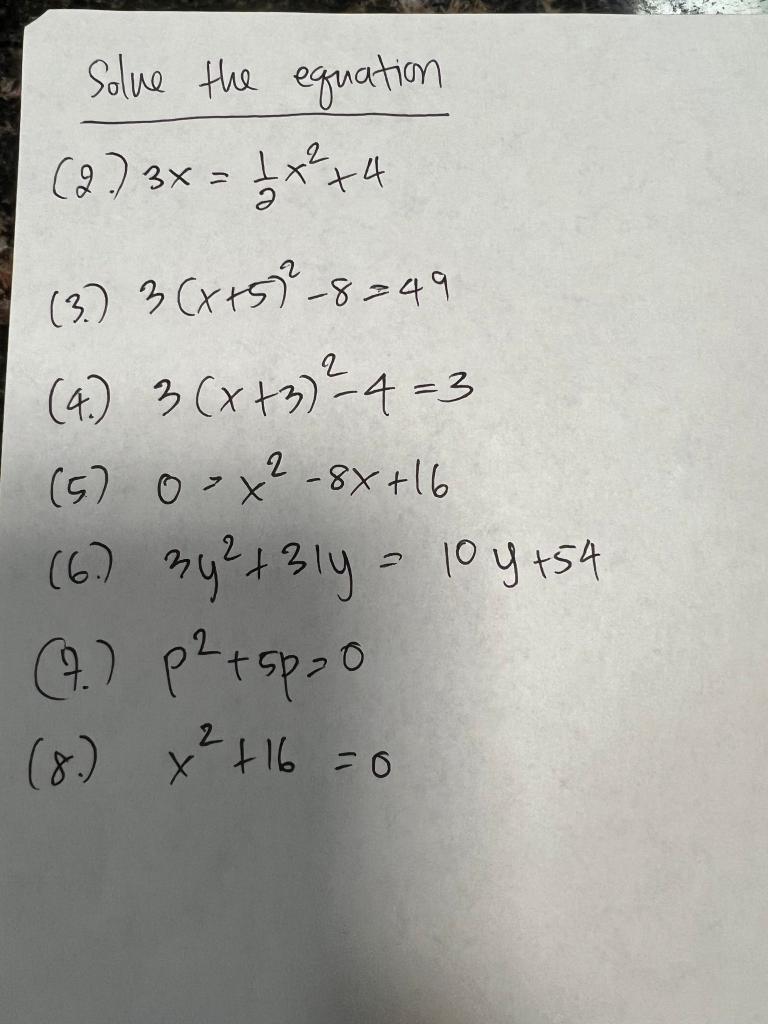 Solve the equation
(2.) 3x = 1/2 x² + 4
(3.) 3(x+5)² - 8 = 49
(4.) 3(x+3)² - 4 = 3
(5) 0 = x² - 8x + 16
(6.) 3y² + 31y = 10y + 54
(7.) p² + 5p = 0
(8.) x² + 16 = 0